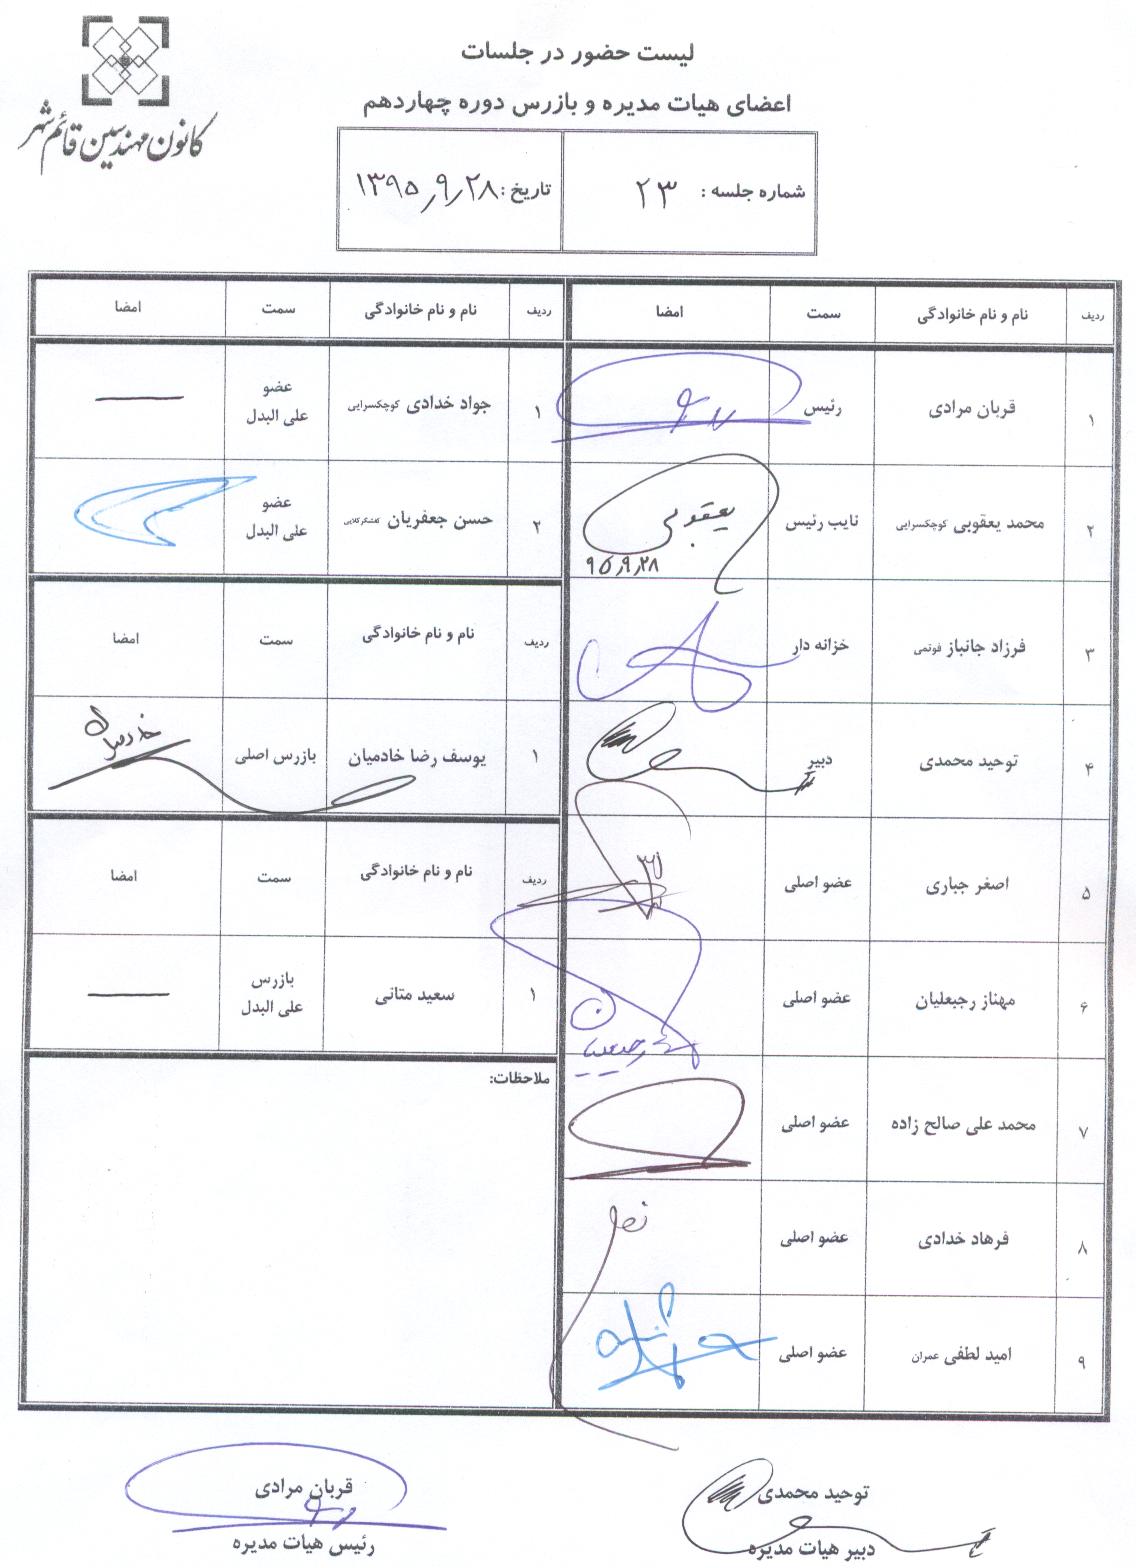 کانون مهندسین قائم شهر
لیست حضور در جلسات
اعضای هیات مدیره و بازرس دوره چهاردهم
شماره جلسه : ۲۳
تاریخ : ۱۳۹۵/۹/۲۸
ردیف نام و نام خانوادگی سمت امضا
۱ قربان مرادی رئیس
۲ محمد یعقوبی کوچکسرایی نایب رئیس یعقوبی
۹۵/۹/۲۸
۳ فرزاد جانباز فوتمی خزانه دار
۴ توحید محمدی دبیر
۵ اصغر جباری عضو اصلی
۶ مهناز رجبعلیان عضو اصلی
۷ محمد علی صالح زاده عضو اصلی
۸ فرهاد خدادی عضو اصلی
۹ امید لطفی عمران عضو اصلی
ردیف نام و نام خانوادگی سمت امضا
۱ جواد خدادی کوچکسرایی عضو
علی البدل
۲ حسن جعفریان کفشگرکلایی عضو
علی البدل
ردیف نام و نام خانوادگی سمت امضا
۱ یوسف رضا خادمیان بازرس اصلی خادمیان
ردیف نام و نام خانوادگی سمت امضا
۱ سعید متانی بازرس
علی البدل
ملاحظات:
توحید محمدی
دبیر هیات مدیره
قربان مرادی
رئیس هیات مدیره